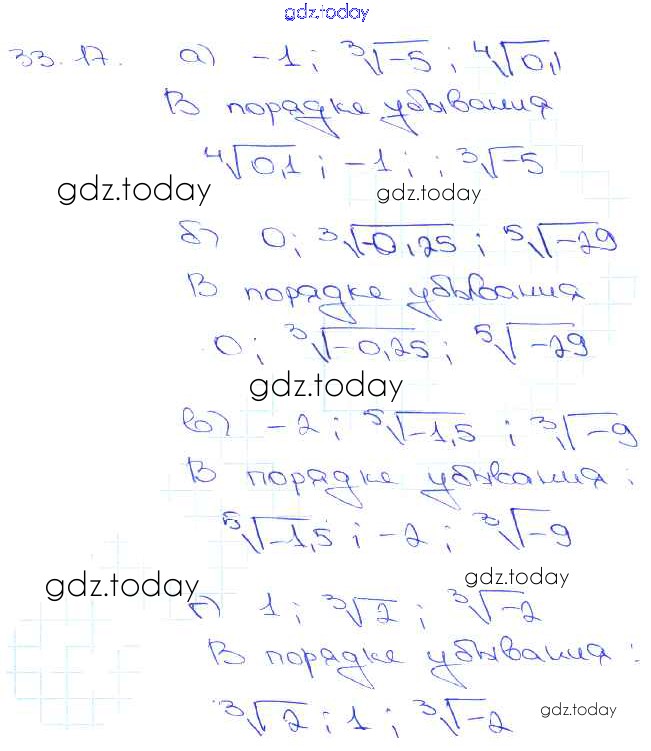 gdz.today
33.17. а) -1; ∛-5; ∜0,1
В порядке убывания
∜0,1; -1; ; ∛-5
gdz.today gdz.today
б) 0; ∛-0,25; ⁵√-29
В порядке убывания
0; ∛-0,25; ⁵√-29
gdz.today
в) -2; ⁵√-1,5; ∛-9
В порядке убывания:
⁵√-1,5; -2; ∛-9
gdz.today gdz.today
г) 1; ∛2; ∛-2
В порядке убывания:
∛2; 1; ∛-2
gdz.today